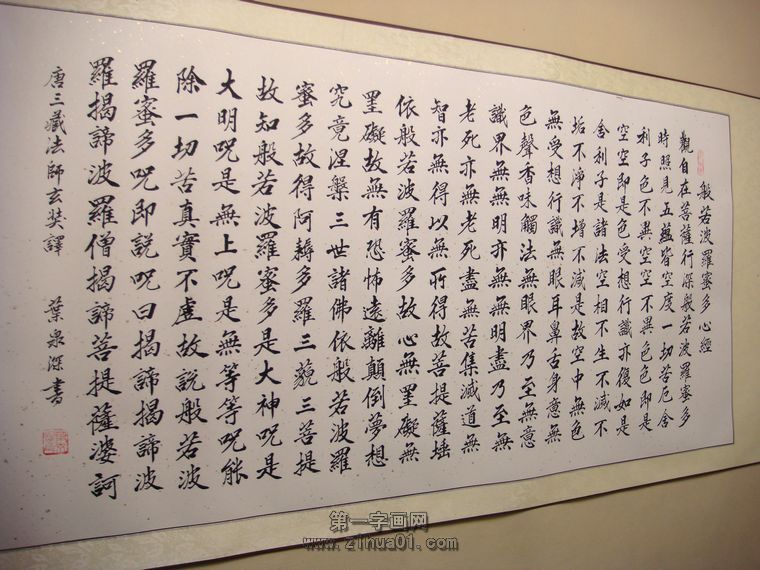 般若波羅蜜多心經
觀自在菩薩行深般若波羅蜜多
時照見五蘊皆空度一切苦厄舍
利子色不異空空不異色色即是
空空即是色受想行識亦復如是
舍利子是諸法空相不生不滅不
垢不淨不增不減是故空中無色
無受想行識無眼耳鼻舌身意無
色聲香味觸法無眼界乃至無意
識界無無明亦無無明盡乃至無
老死亦無老死盡無苦集滅道無
智亦無得以無所得故菩提薩埵
依般若波羅蜜多故心無罣礙無
罣礙故無有恐怖遠離顛倒夢想
究竟涅槃三世諸佛依般若波羅
蜜多故得阿耨多羅三藐三菩提
故知般若波羅蜜多是大神呪是
大明呪是無上呪是無等等呪能
除一切苦真實不虛故説般若波
羅蜜多呪即説呪曰揭諦揭諦波
羅揭諦波羅僧揭諦菩提薩婆訶
唐三藏法師玄奘譯 葉泉深書
第一字画网
www.zihua01.com